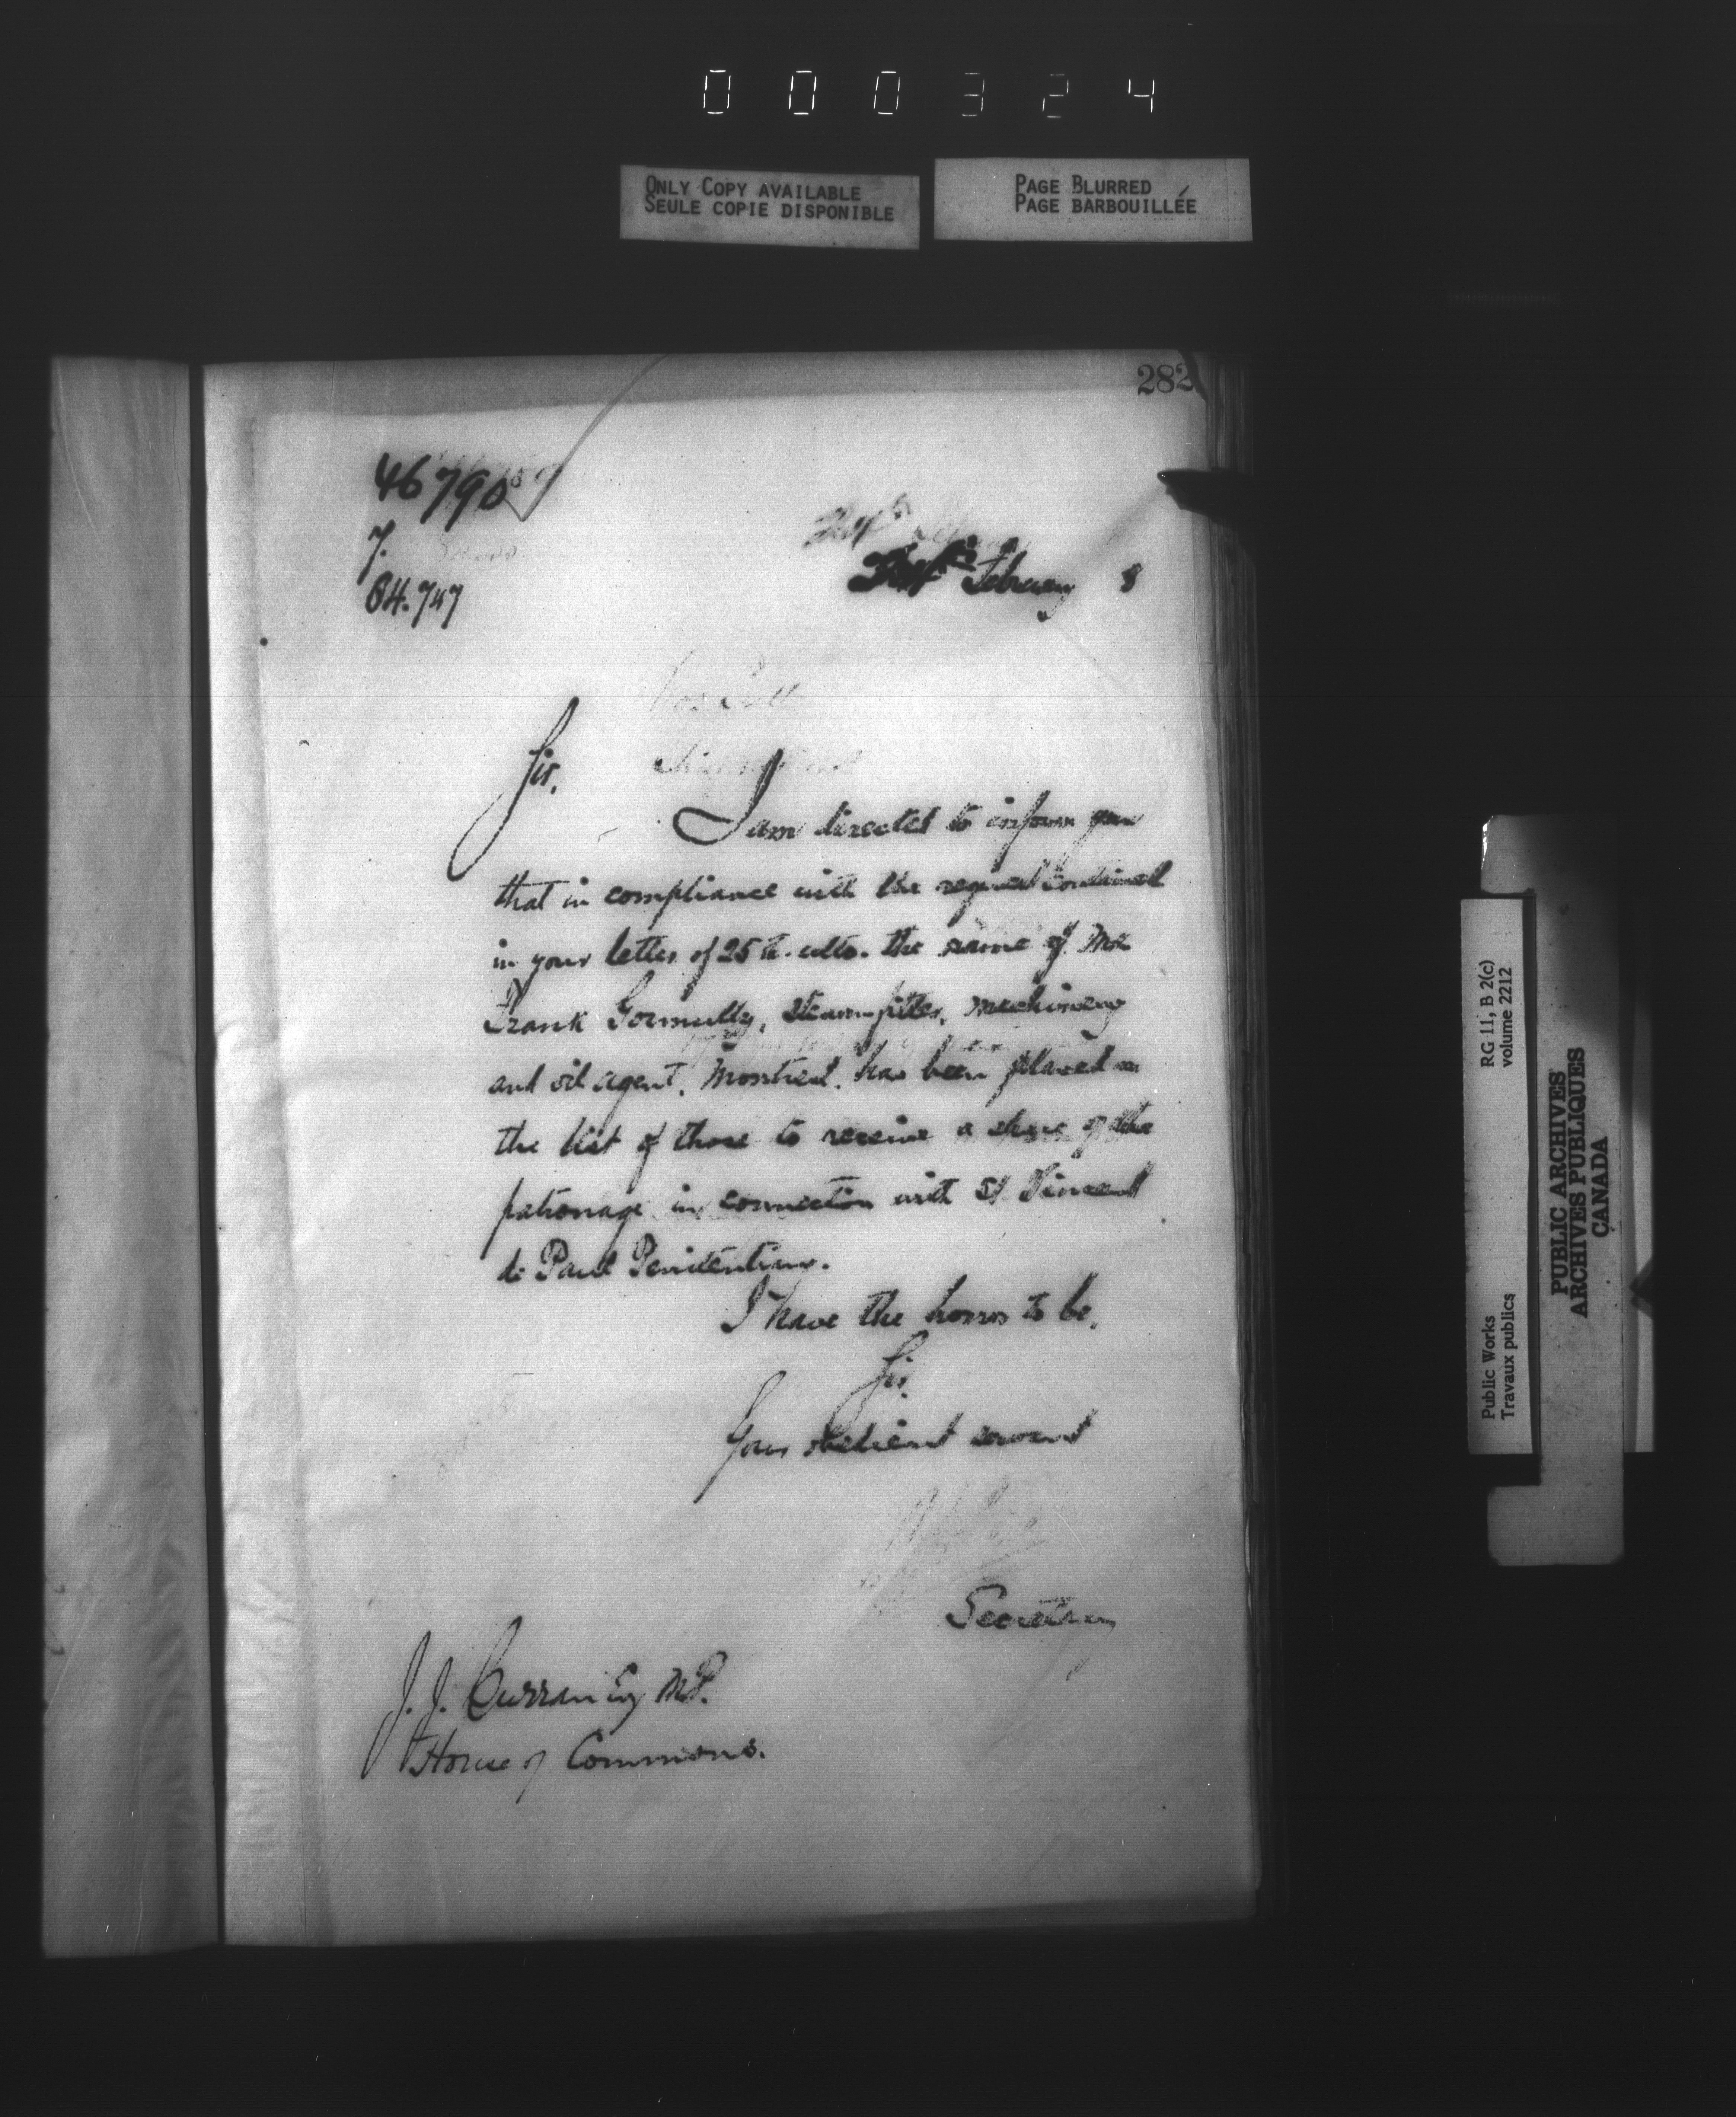 000324
ONLY COPY AVAILABLE
SEULE COPIE DISPONIBLE
PAGE BLURRED
PAGE BARBOUILLÉE
282
46790
7.
84.747
February 8
Sir,
I am directed to inform you
that in compliance with the request contained
in your letter of 25th. ulto. the name of Mr
Frank Gormully, steam-fitter, machinery
and oil agent, Montreal, has been placed on
the list of those to receive a share of the
patronage in connection with St Vincent
de Paul Penitentiary.
I have the honor to be,
Sir,
Your obedient servant
Secretary
J. J. Curran Esq M.P.
House of Commons.
Public Works
Travaux publics
RG 11, B 2(c)
volume 2212
PUBLIC ARCHIVES
ARCHIVES PUBLIQUES
CANADA